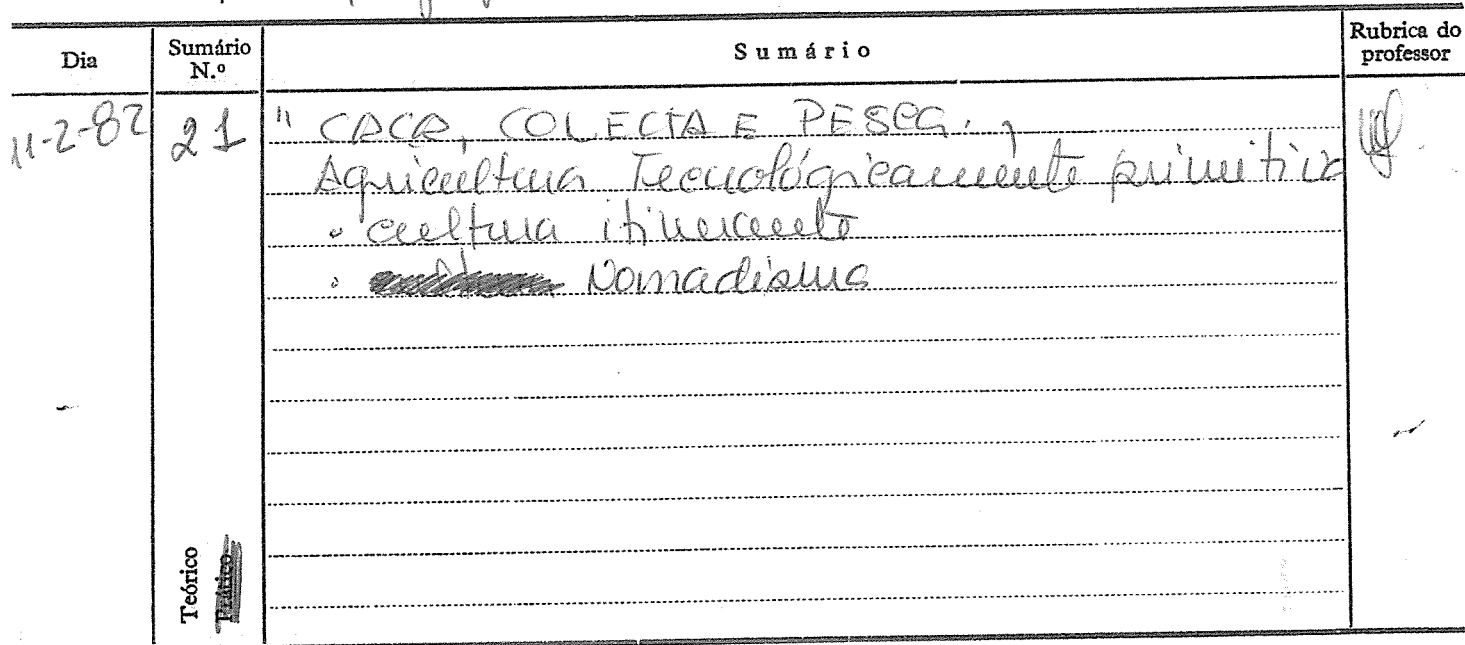 Dia
Sumário N.º
Sumário
Rubrica do professor
11-2-82
21
" CAÇA, COLECTA E PESCA.
Agricultura Tecnológicamente primitiva
• cultura itinerante
• Nomadismo
Teórico
Prático